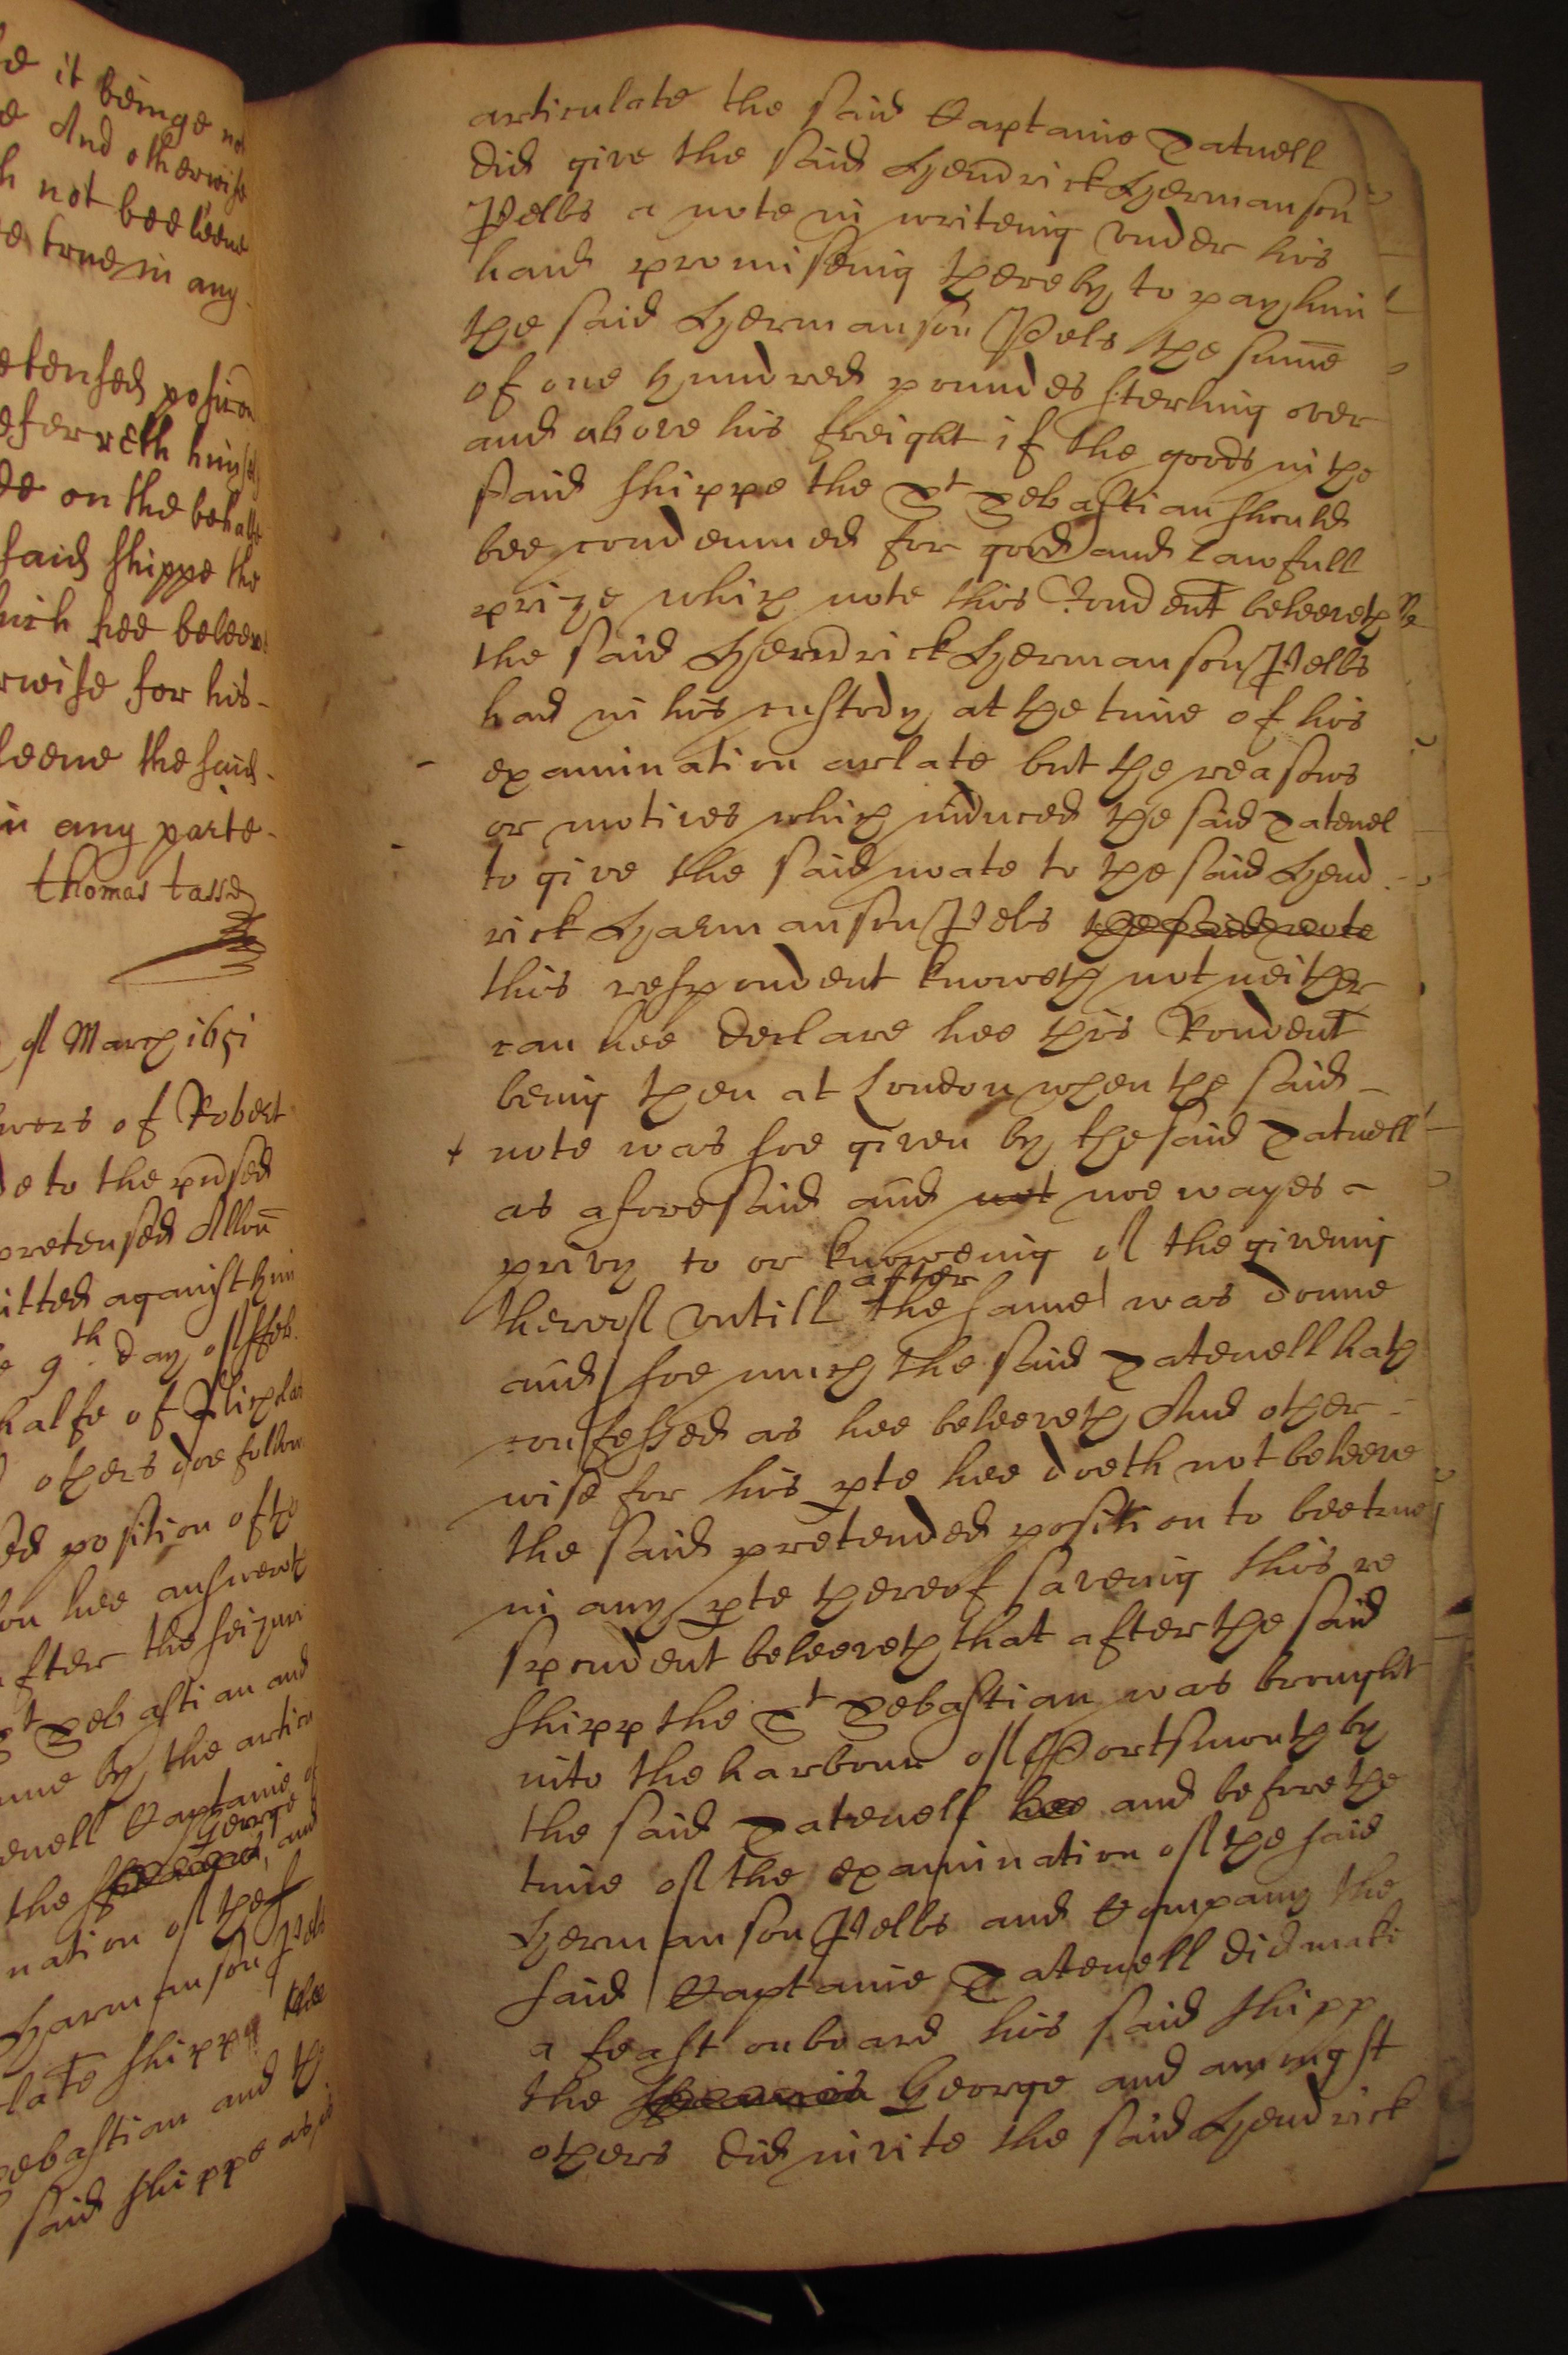 e it beinge not
e And otherwise
h not beeleeve
e true in any
etensed posicon
eferreth himself
de on the behalfe
said shippe the
hich hee beleev
rwise for his
leeve the said
in any parte
thomas tasse
of March 1651
wers of Robert
de to the pnsed
pretensed Allon
itted against him
e 9th day of ffeb.
halfe of
others doe follow
ed position of the
on hee answereth
after the seizure
St Sebastian and
ume by the articu
enell Captaine of
George
the and
nation of the
Harmanson Pels
late shippe the
Sebastian and th
said shippe as is
articulate the said Captaine Satnell
did give the said Hendrick Hermanson
Pells a note in writeing under his
hand promiseing thereby to pay him
the said Hermanson Pels the sume
of one hundred poundes sterling over
and above his freight if the goods in the
said shippe the St Sebastian should
bee condemned for good and lawfull
prize which note this Rondent beleeveth
the said Hendrick Hermanson Pells
had in his custody at the time of his
examination arlate but the reasons
or motives which induced the said Satenel
to give the said noate to the said Hend
rick Harmanson Pels the said note
this respondent knoweth not neither
can hee declare hee this Rondent
being then at London when the said
note was soe given by the said Satnell
as aforesaid and not noe wayes
privy to or knoweing of the giveing
after
thereof untill the same was donne
and soe much the said Satenell hath
confessed as hee beleeveth And other
wise for his pte hee doeth not beleeve
the said pretended position to bee true
in any pte thereof saveing this re
spondent beleeveth that after the said
shipp the St Sebastian was brought
into the harbour of Portsmouth by
the said Satenell hee and before the
time of the examination of the said
Hermanson Pells and Company the
said Captaine Satenell did make
a feast onboard his said shipp
the George and amongst
others did invite the said Hendrick